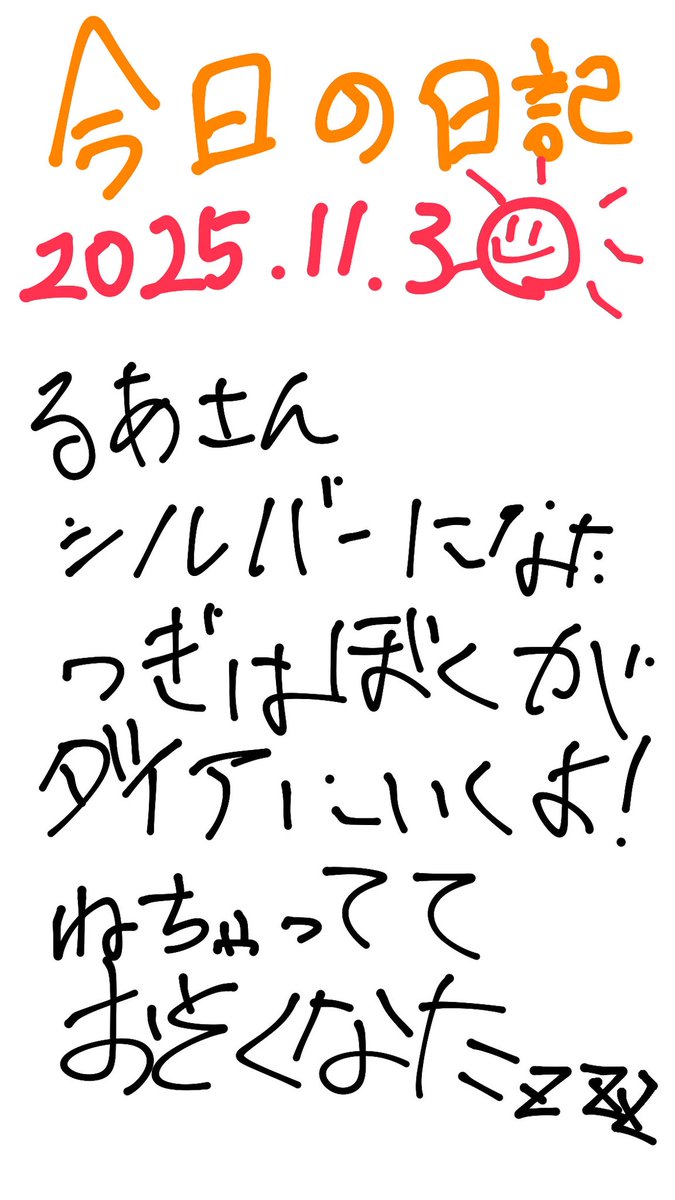 今日の日記
2025.11.3
るあさん
シルバーになた
つぎはぼくが
ダイアにいくよ!
ねちゃってて
おそくなたzzz